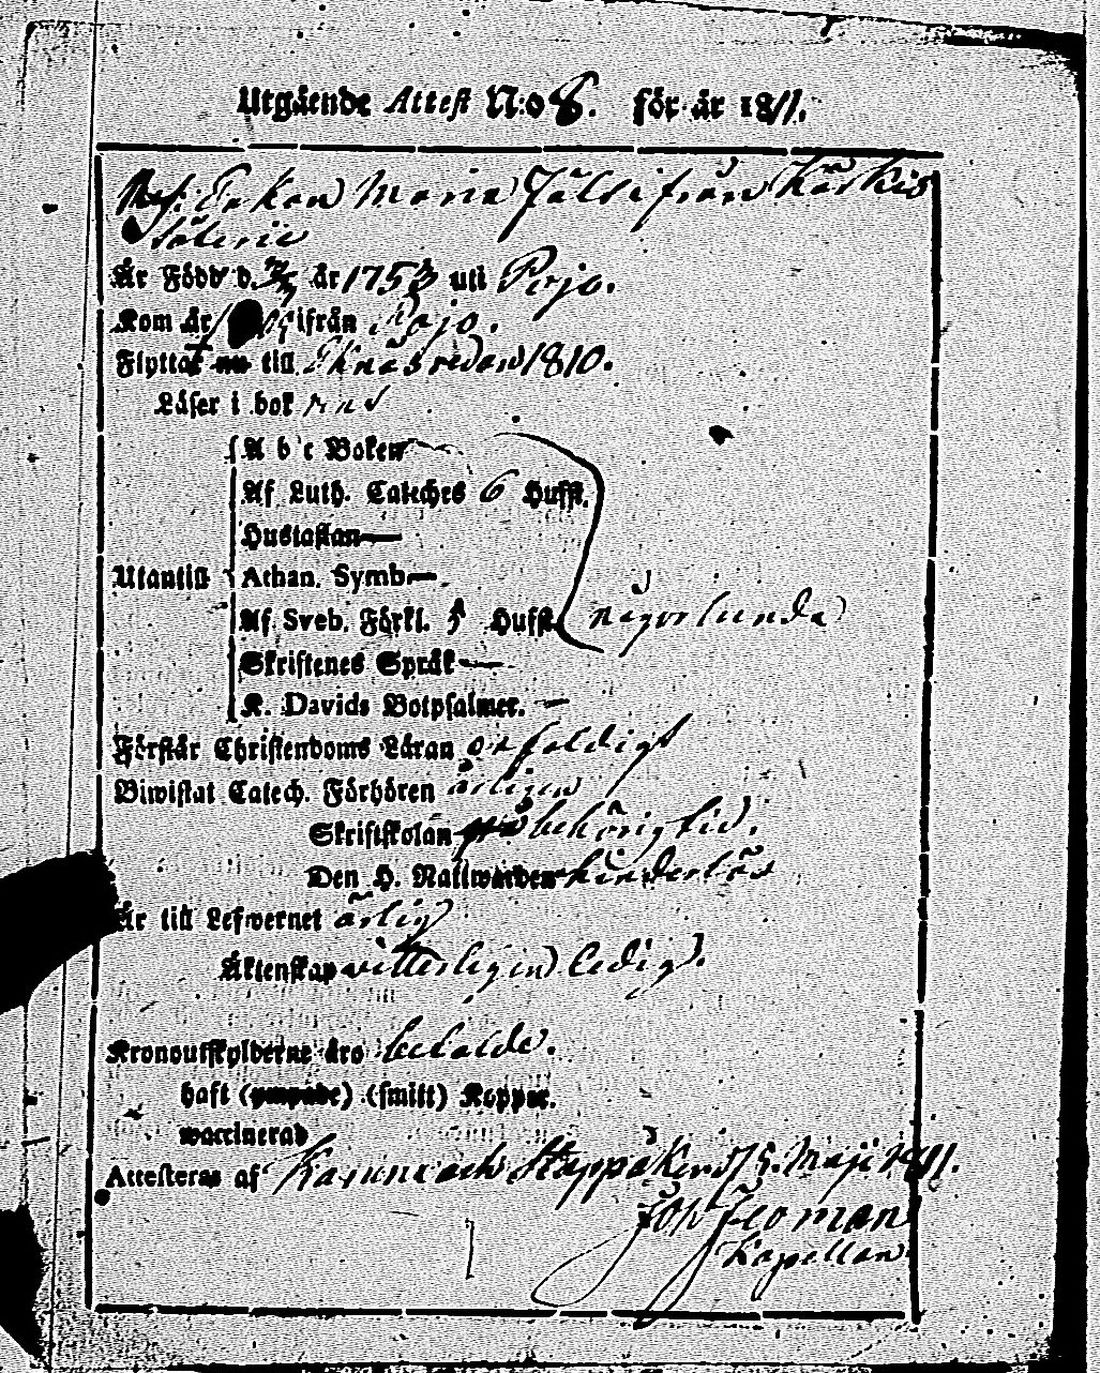 Utgående Attest N:o 8. för år 1811.
Enkan Maria ifrån Koskis
Är Född d. år 1753 uti Pojo.
Kom år ifrån Pojo.
Flyttat till redan 1810.
Läser i bok
A b c Boken
Af Luth. Cateches 6 Hufst.
Hustaflan —
Utantill Athan. Symb —
Af Sveb. Förkl. 5 Hufst. någorlunda
Skriftenes Språk —
K. Davids Botpsalmer. —
Förstår Christendoms Läran enfaldigt
Biwistat Catech. Förhören årligen
Skriftskolan på behörig tid.
Den H. Nattwarden hinderlös
Är till Lefwernet ärlig
Äktenskap vitterligen ledig.
Kronoutskylderne äro betalde.
haft (ympade) (smitt) Koppor.
waccinerad
Attesteras af Karuna och Stappåker d. 5. Maji 1811.
Joh
Kapellan